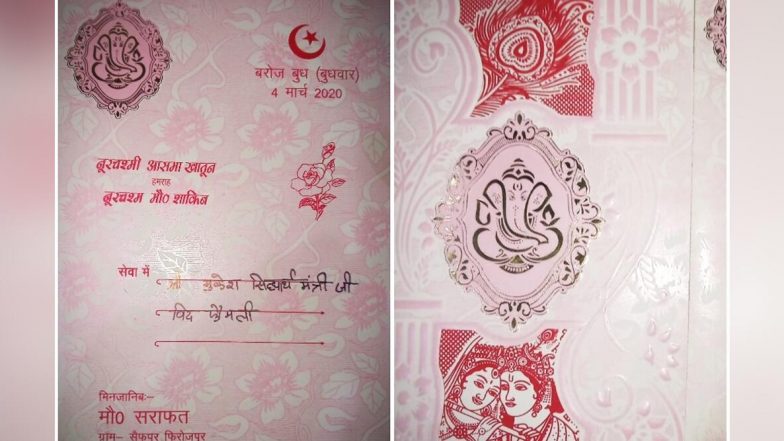 बरोज बुध (बुधवार)
4 मार्च 2020
नूरचश्मी आसमा खातून
हमराह
नूरचश्म मौ० शाकिब
सेवा में
श्री मुकेश सिद्धार्थ मंत्री जी
विद फैमली
मिनजानिब:-
मौ० सराफत
ग्राम- सैफपुर फिरोजपुर